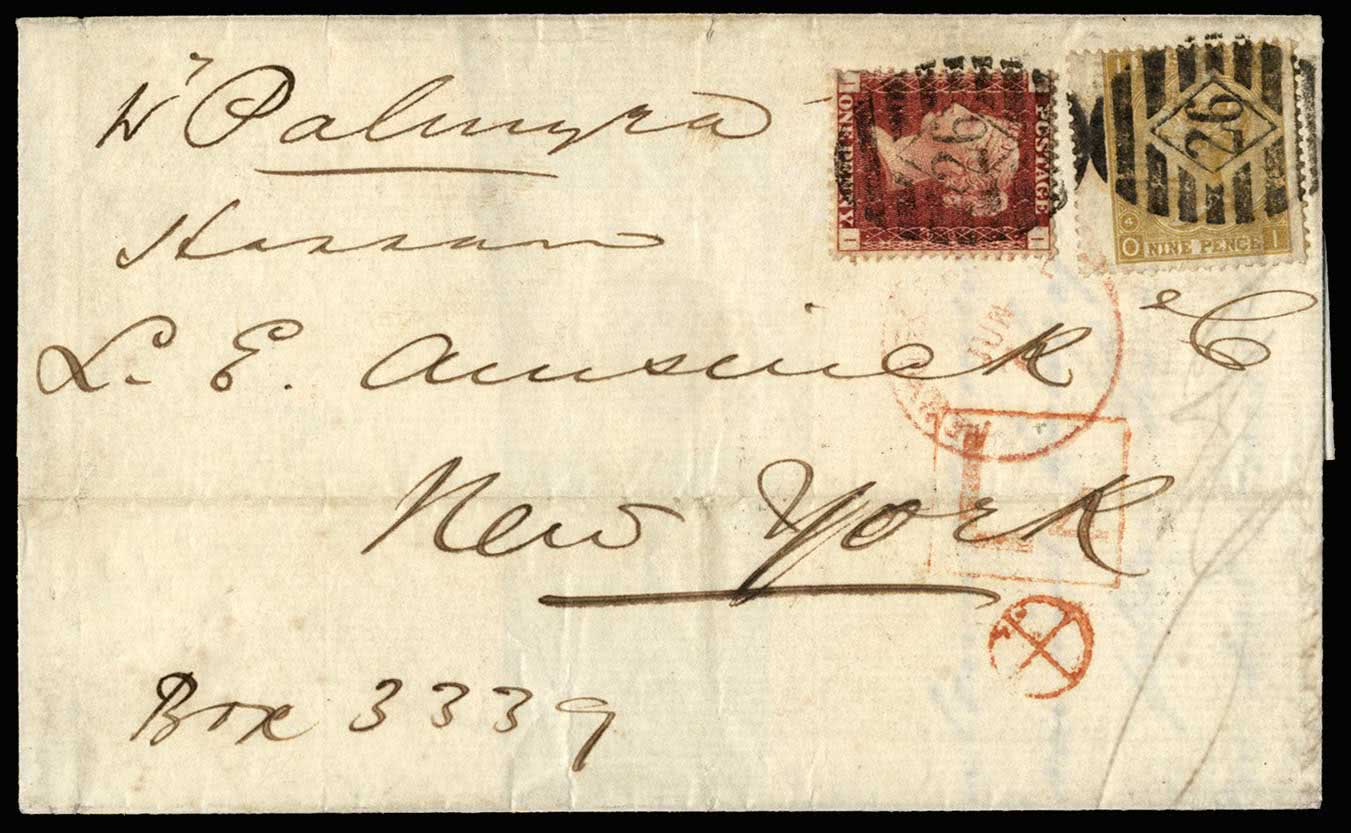 pr Palmyra
L. E. Amsinck & Co
New York
Box 3339
POSTAGE
ONE PENNY
I I
26
4
O NINE PENCE I
26
JUN
L